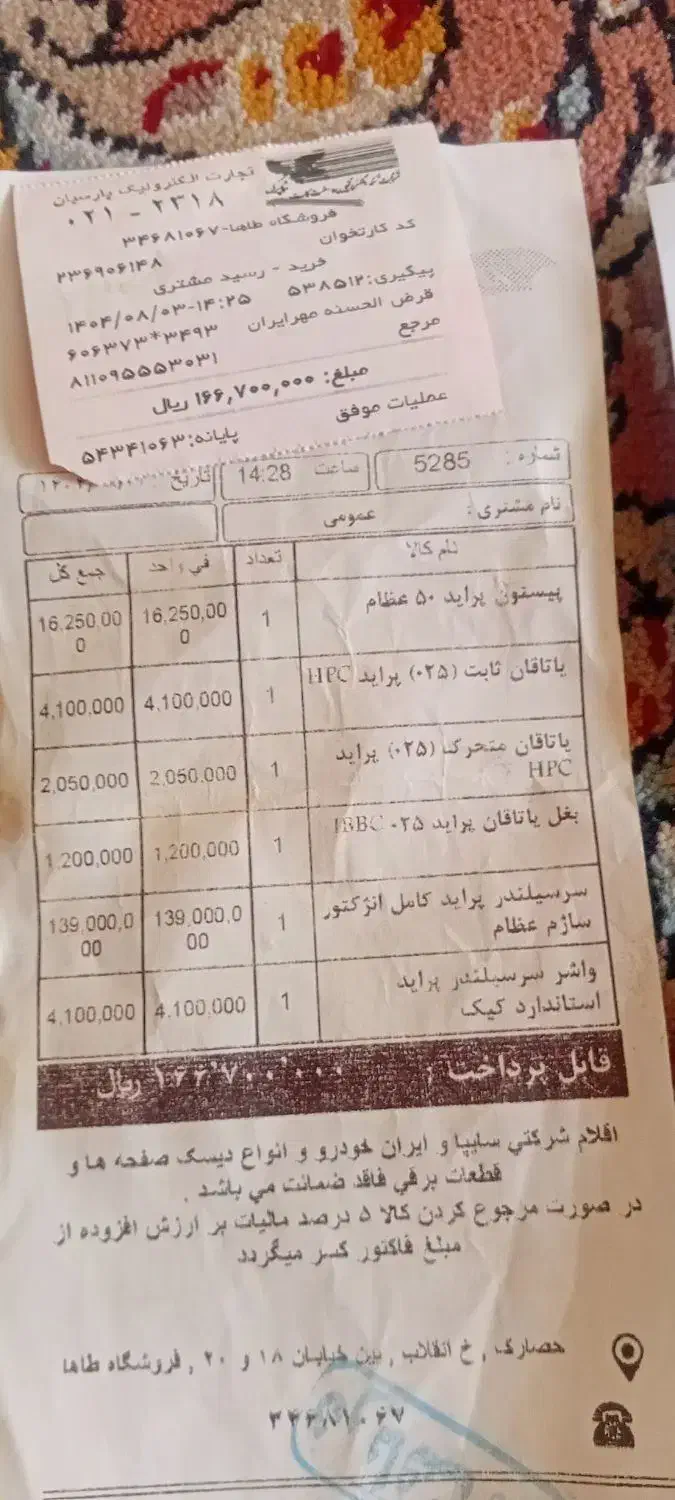 تجارت الکترونیک پارسیان
۰۲۱ - ۲۳۱۸
فروشگاه طاها-۳۴۶۸۱۰۶۷
کد کارتخوان
۲۳۶۹۰۶۱۴۸
خرید - رسید مشتری
پیگیری:۵۳۸۵۱۲ ۱۴۰۴/۰۸/۰۳-۱۴:۲۵
قرض الحسنه مهرایران ۶۰۶۳۷۳*۳۴۹۳
مرجع
۸۱۱۰۹۵۵۵۳۰۳۱
مبلغ: ۱۶۶,۷۰۰,۰۰۰ ریال
عملیات موفق
پایانه:۵۴۳۴۱۰۶۳
شماره : 5285 ساعت 14:28 تاریخ
نام مشتری : عمومی
نام کالا تعداد في واحد جمع کل
پیستون پراید ۵۰ عظام 1 16,250,000 16,250,000
یاتاقان ثابت (۰۲۵) پراید HPC 1 4,100,000 4,100,000
یاتاقان متحرک (۰۲۵) پراید
HPC 1 2,050,000 2,050,000
بغل یاتاقان پراید ۰۲۵ IBBC 1 1,200,000 1,200,000
سرسیلندر پراید کامل انژکتور
سازم عظام 1 139,000,000 139,000,000
واشر سرسیلندر پراید
استاندارد کیک 1 4,100,000 4,100,000
قابل پرداخت : ۱۶۶٬۷۰۰٬۰۰۰ ریال
اقلام شرکتي سایپا و ایران خودرو و انواع دیسک صفحه ها و
قطعات برقي فاقد ضمانت مي باشد .
در صورت مرجوع کردن کالا ۵ درصد مالیات بر ارزش افزوده از
مبلغ فاکتور کسر میگردد
حصارک , خ انقلاب , بین خیابان ۱۸ و ۲۰ , فروشگاه طاها
۳۴۶۸۱۰۶۷